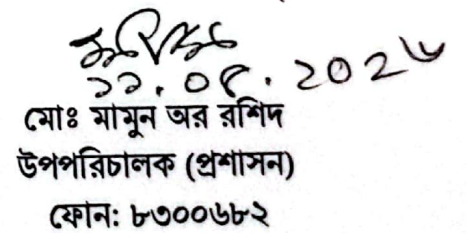 ১১.০৫.২০২৬
মোঃ মামুন অর রশিদ
উপপরিচালক (প্রশাসন)
ফোন: ৮৩০০৬৮২